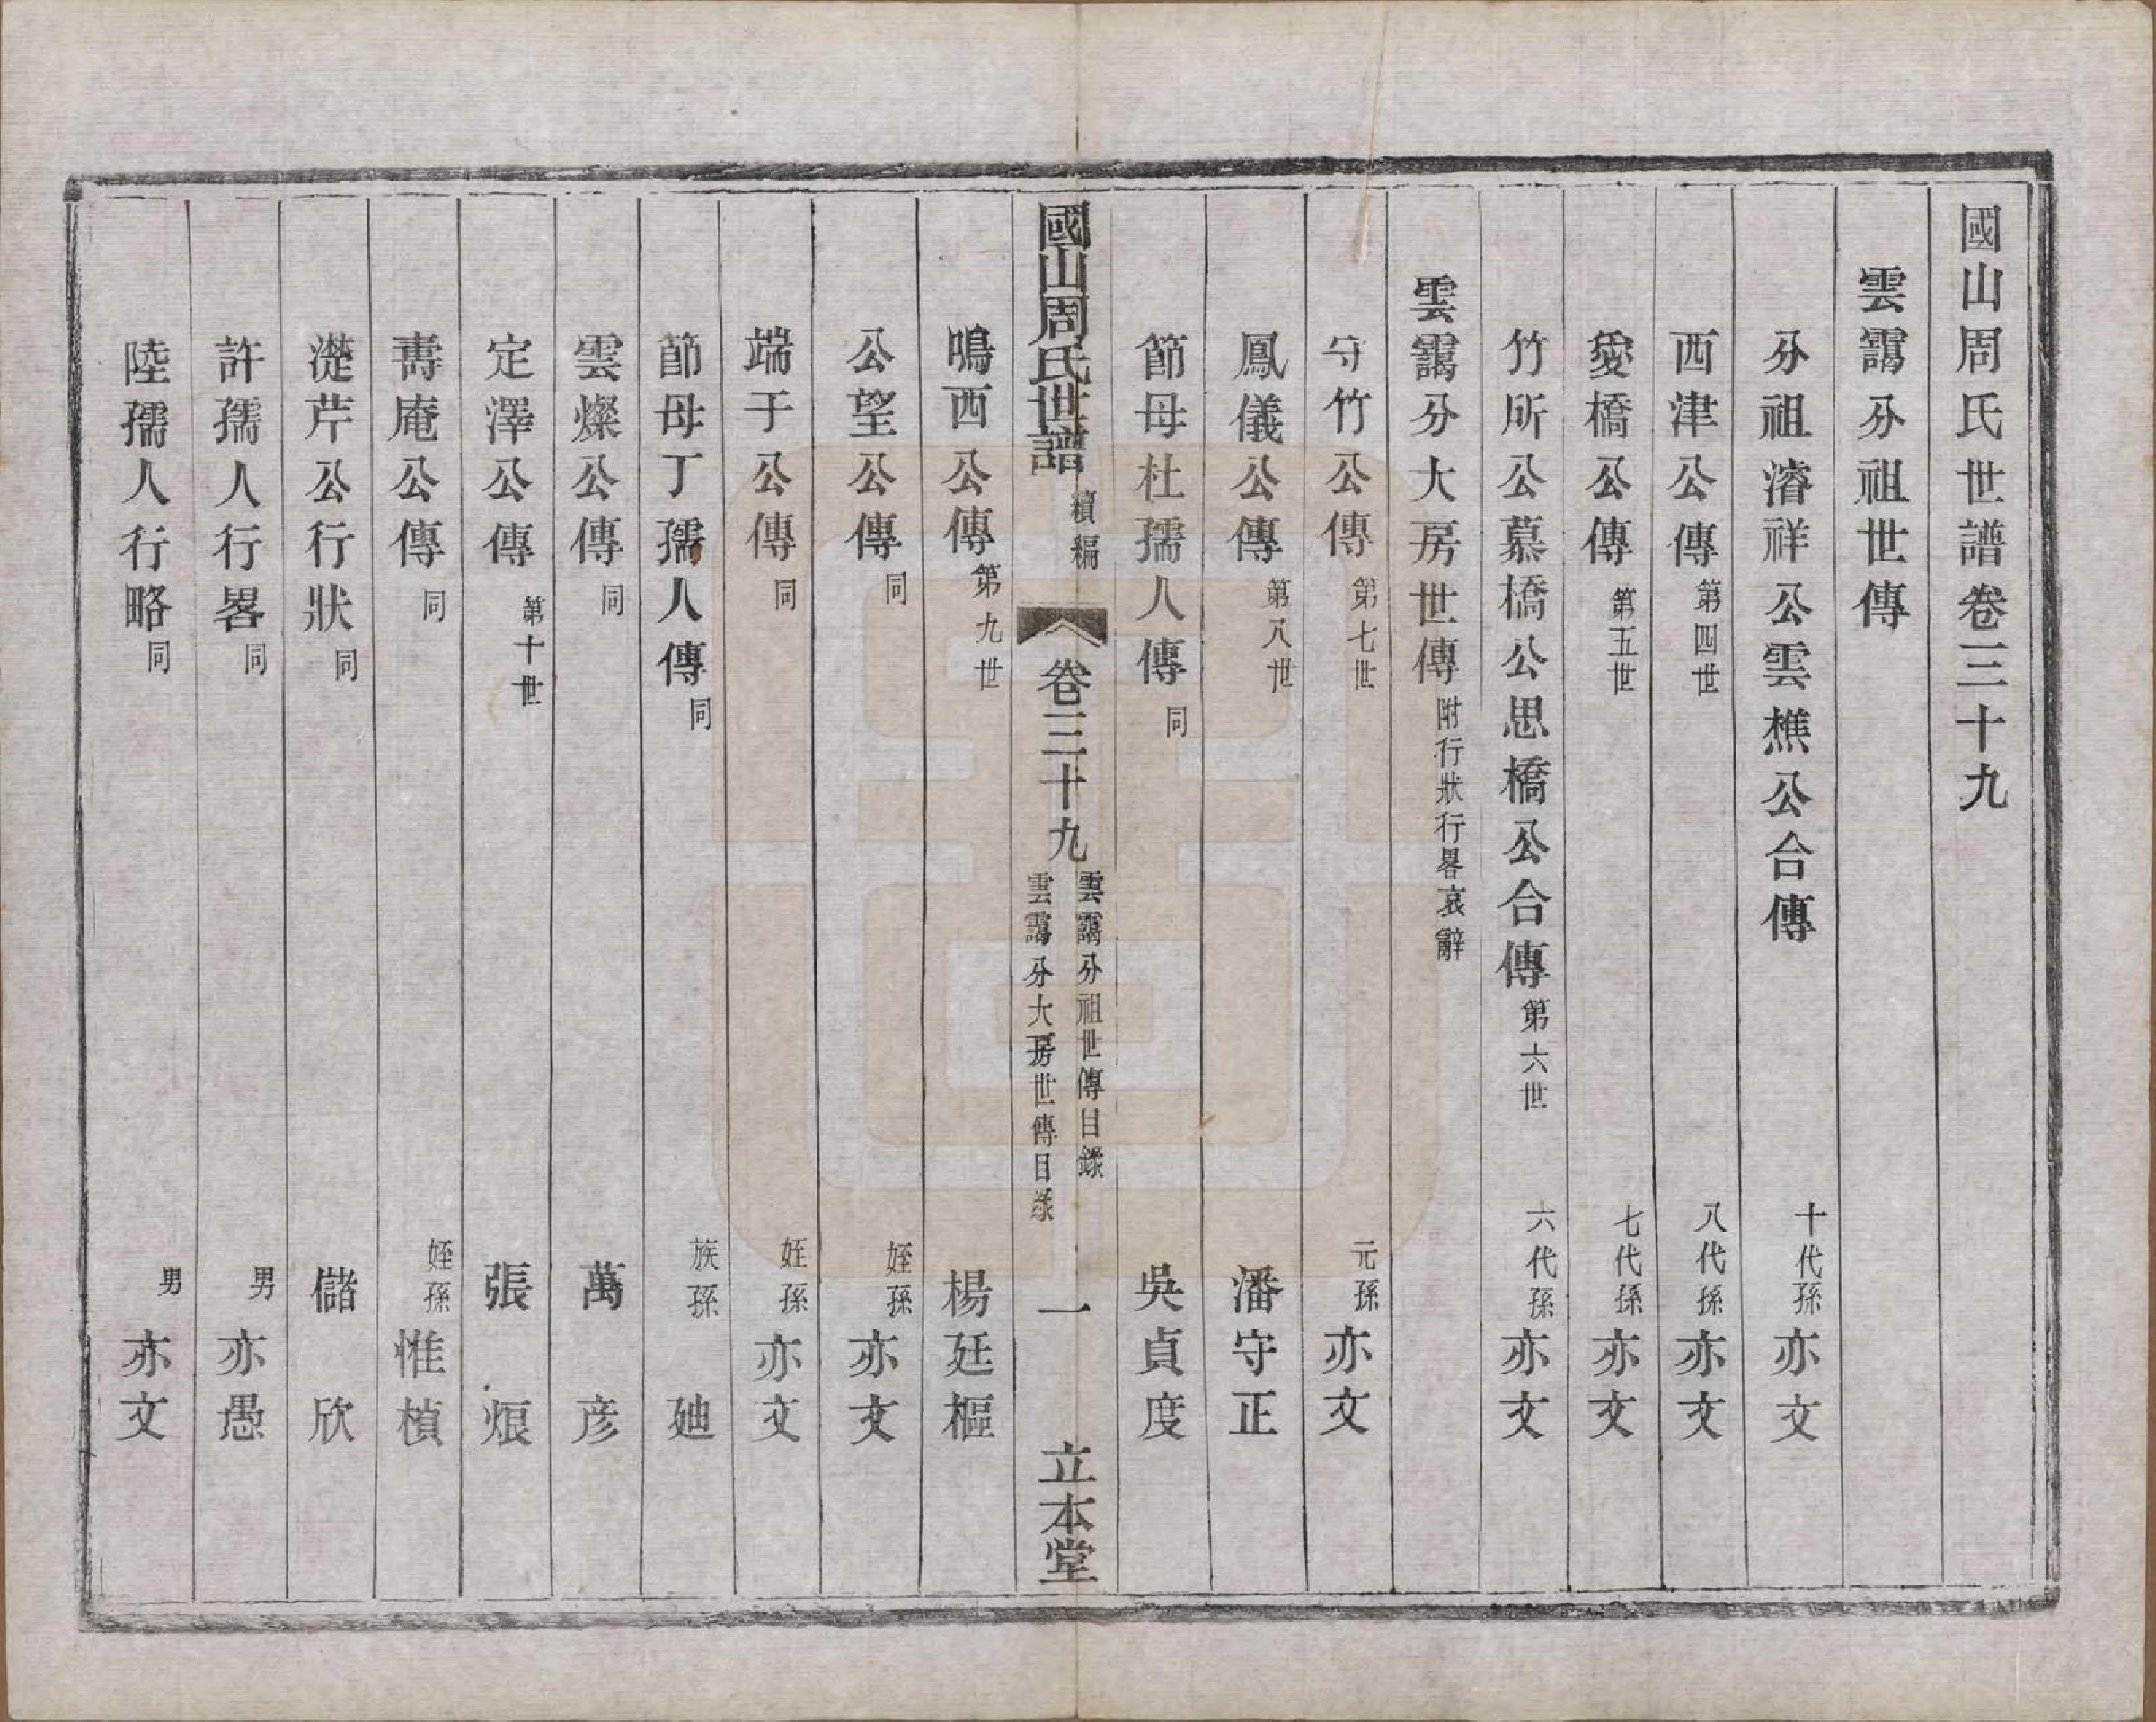 國山周氏世譜卷三十九
雲靄分祖世傳
分祖濬祥公雲樵公合傳 十代孫亦文
西津公傳第四世 八代孫亦文
愛橋公傳第五世 七代孫亦文
竹所公慕橋公思橋公合傳第六世 六代孫亦文
雲靄分大房世傳附行狀行畧哀辭
竹公傳第七世 元孫亦文
鳳儀公傳第八世 潘守正
節母杜孺人傳同 吳貞度
國山周氏世譜 續編 卷三十九 雲靄分祖世傳目錄 雲靄分大房世傳目錄 一 立本堂
鳴西公傳第九世 楊廷樞
公望公傳同 姪孫亦文
端于公傳同 姪孫亦文
節母丁孺人傳同 族孫廸
雲燦公傳同 萬彦
定澤公傳第十世 張烺
壽庵公傳同 姪孫惟楨
漇芹公行狀同 儲欣
許孺人行畧同 男亦愚
陸孺人行略同 男亦文